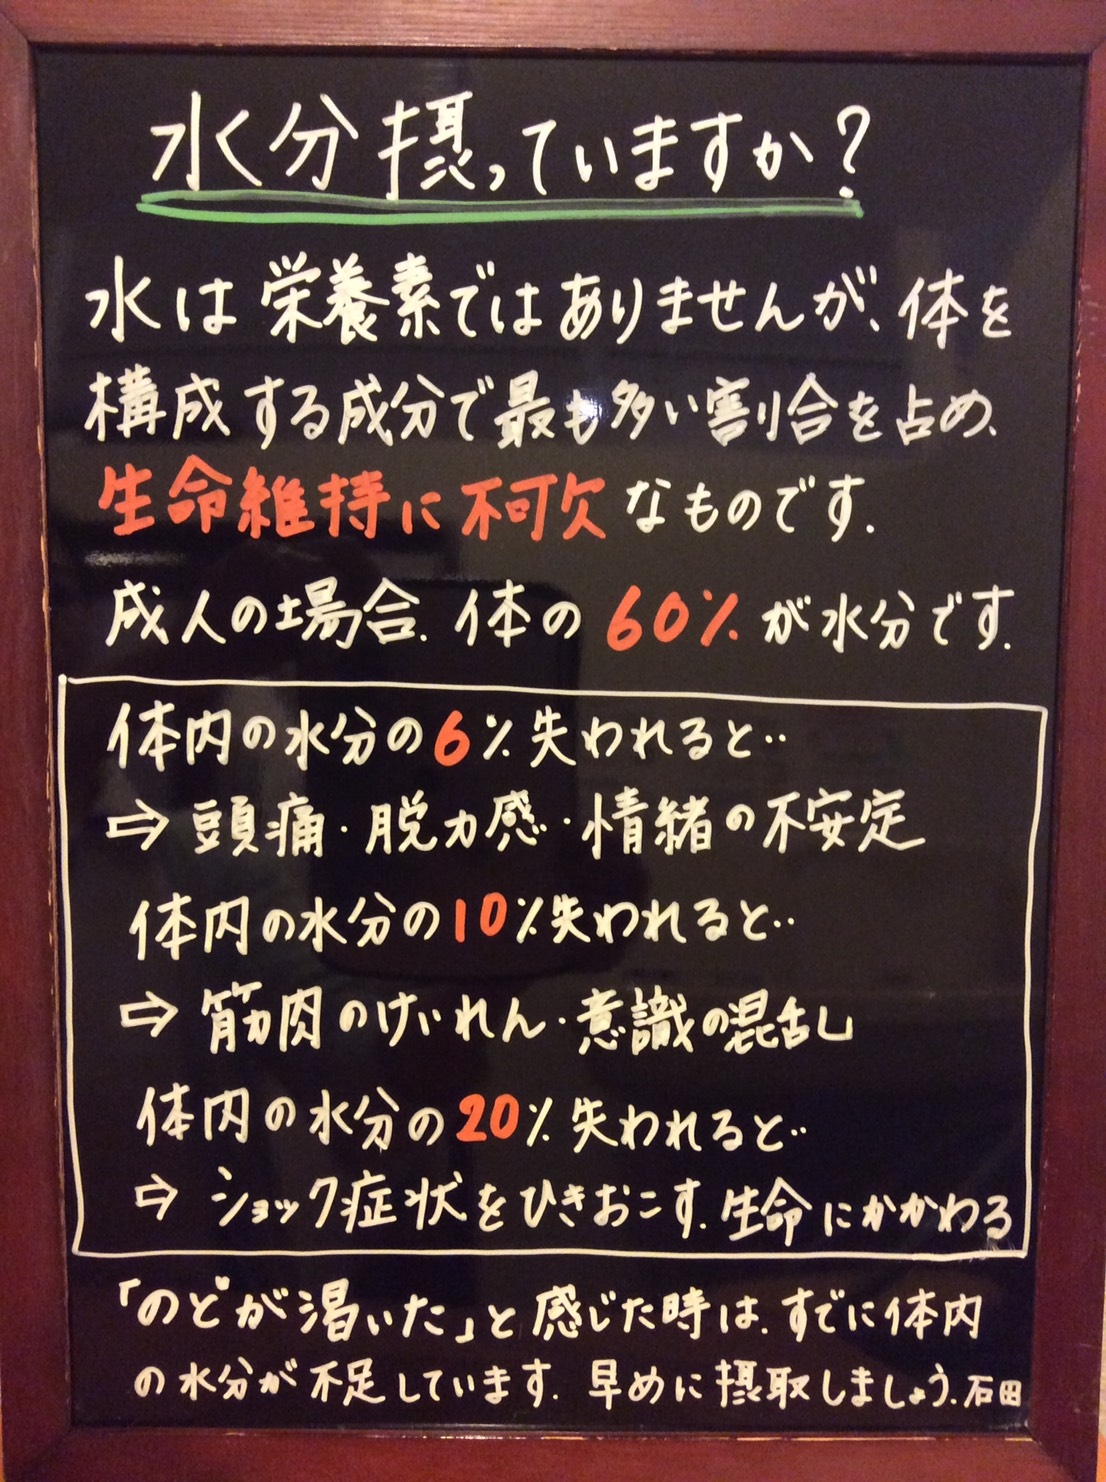 水分摂っていますか?
水は栄養素ではありませんが、体を
構成する成分で最も多い割合を占め、
生命維持に不可欠なものです.
成人の場合. 体の60%が水分です.
体内の水分の6%失われると‥
⇨ 頭痛・脱力感・情緒の不安定
体内の水分の10%失われると‥
⇨ 筋肉のけいれん・意識の混乱
体内の水分の20%失われると‥
⇨ ショック症状をひきおこす. 生命にかかわる
「のどが渇いた」と感じた時は. すでに体内
の水分が不足しています. 早めに摂取しましょう. 石田